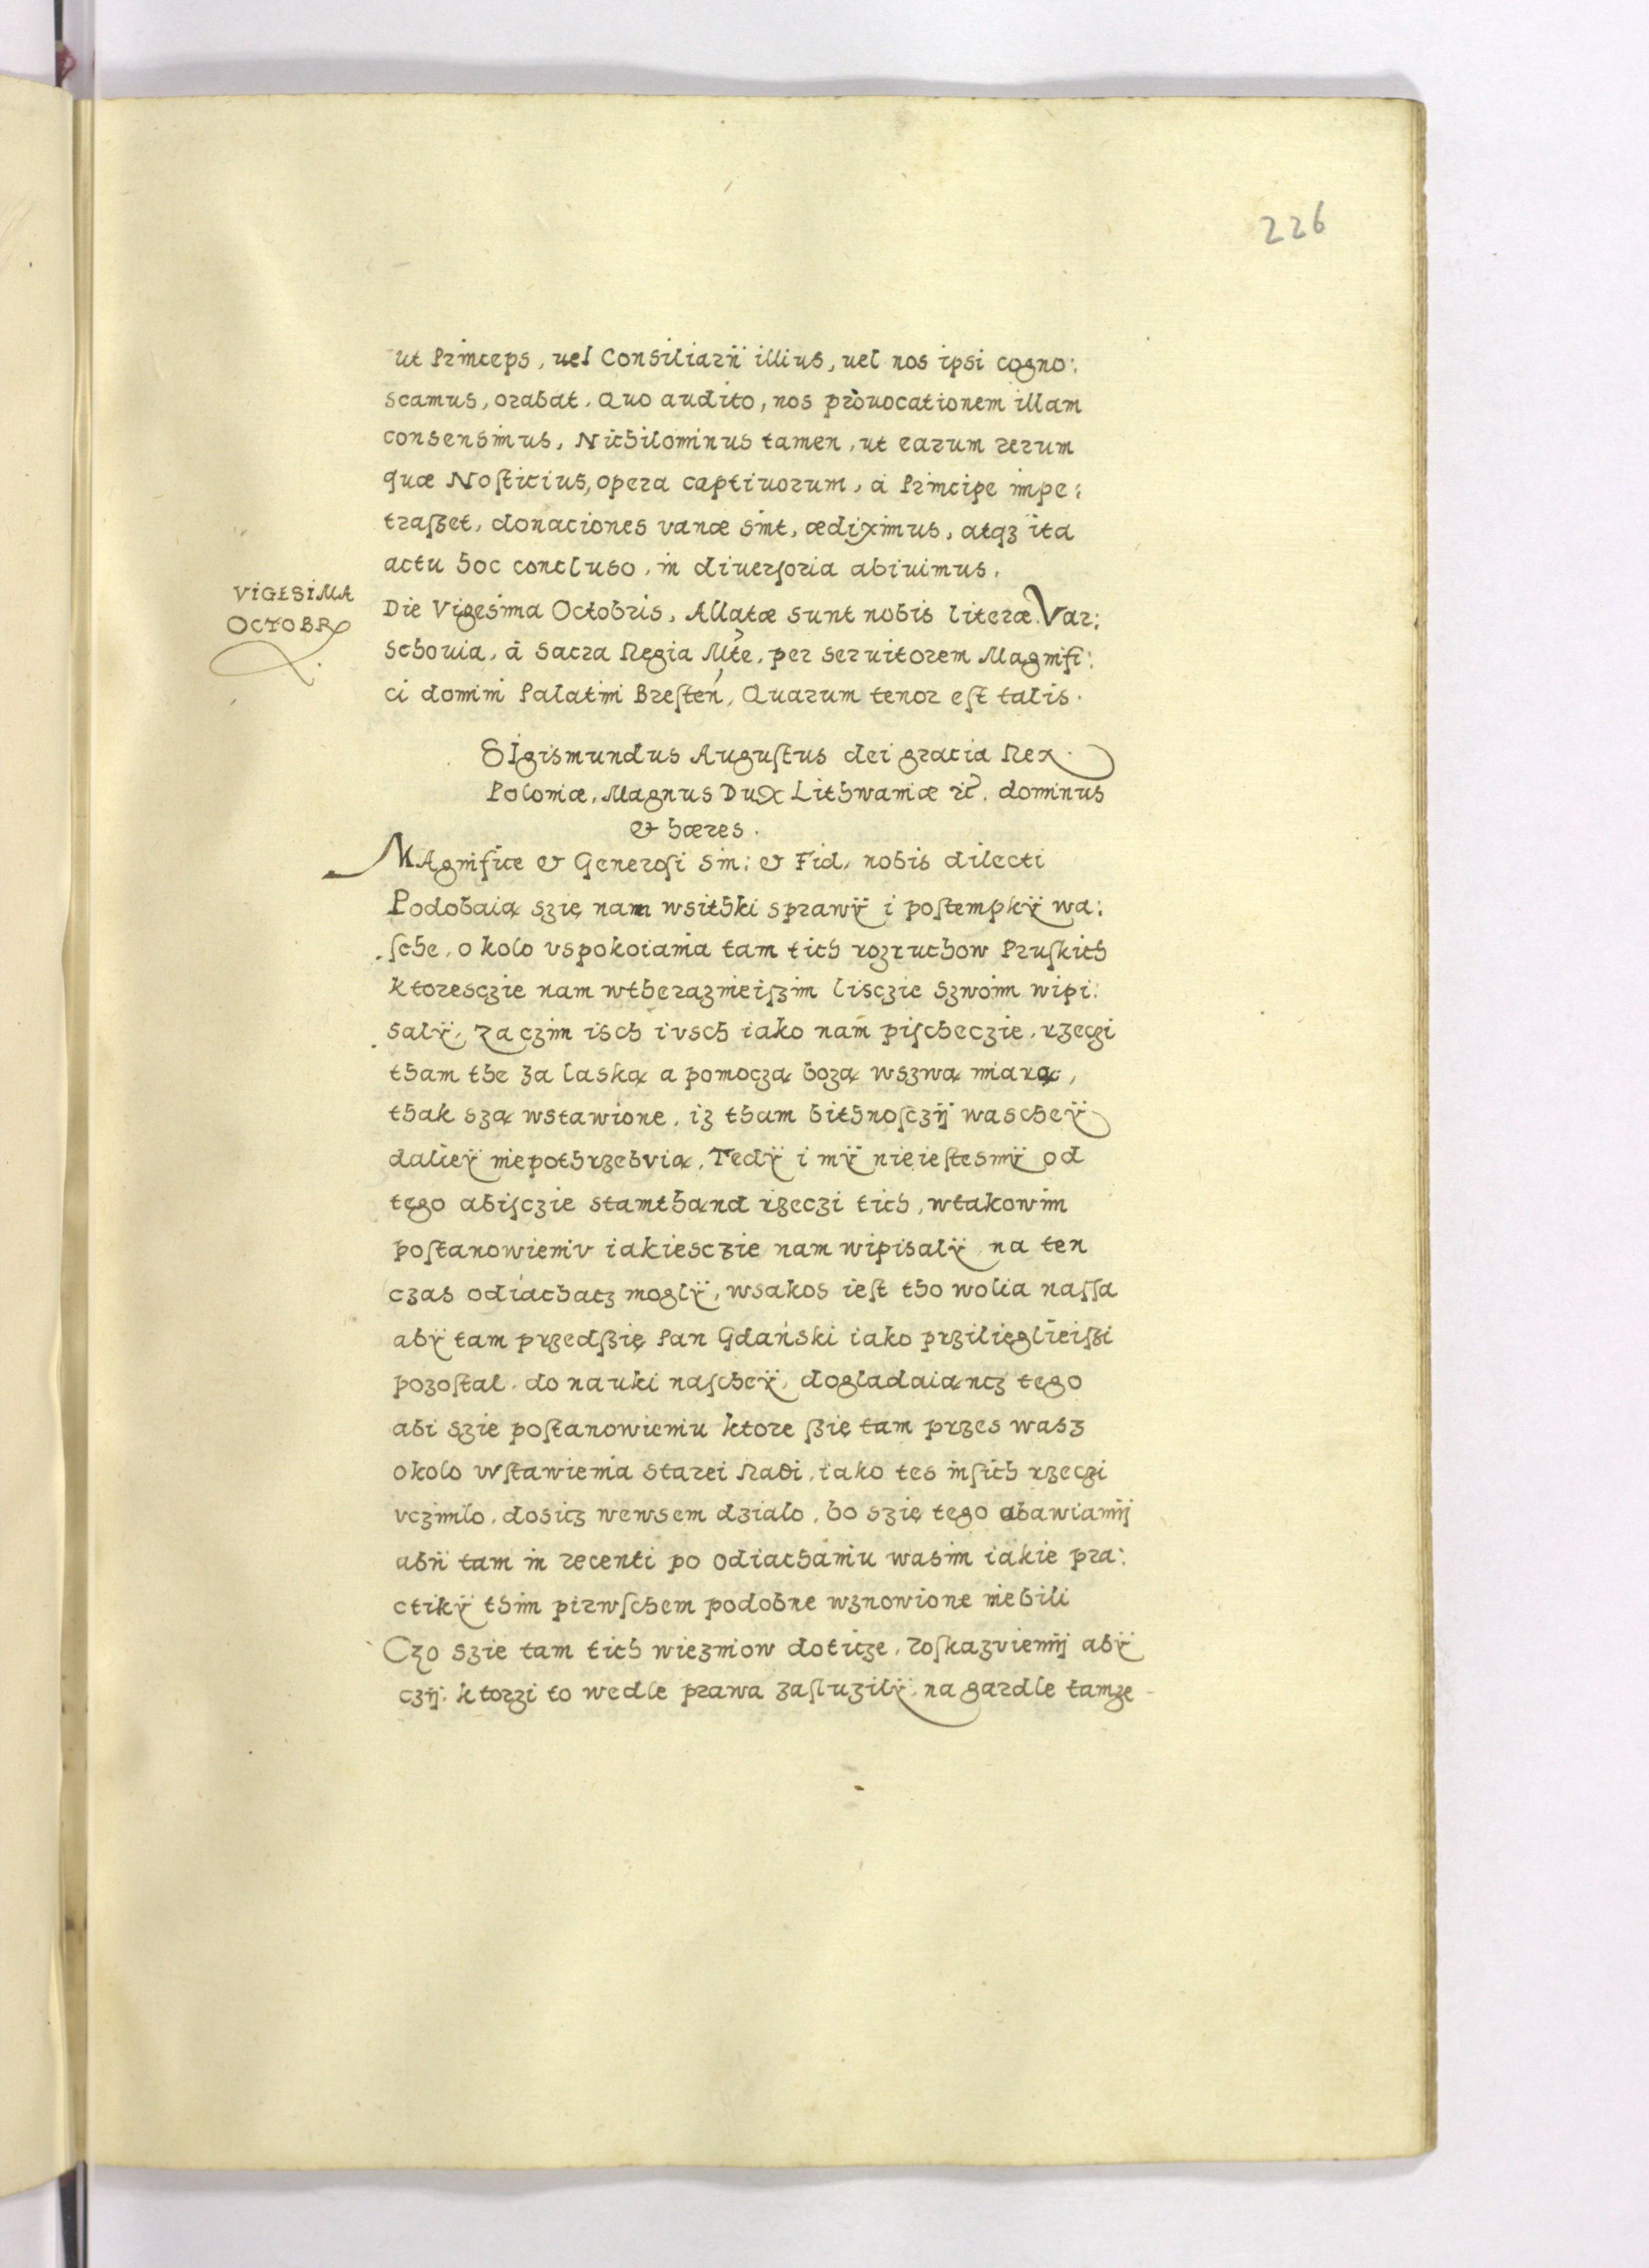 226
ut Princeps, uel Consiliarÿ illius, uel nos ipsi cogno:
scamus, orabat. Quo audito, nos prouocationem illam
consensimus, Nichilominus tamen, ut earum rerum
quæ Nosticius, opera captiuorum, á Principe impe:
traßet, donaciones vanæ sint, ædiximus, atqꝫ ita
actu hoc concluso, in diuersoria abiuimus.
VIGESIMA
OCTOBR
Die Vigesima Octobris, Allatæ sunt nobis literæ Var:
schouia, á Sacra Regia Mte, per seruitorem Magnifi:
ci domini Palatini Bresten, Quarum tenor est talis.
SIgismundus Augustus dei gracia Rex
Poloniæ, Magnus Dux Lithwaniæ zc. dominus
& hæres.
MAgnifice & Generosi Sin: & Fid. nobis dilecti
Podobaią szię nam wsithki sprawÿ i postempkÿ wa:
sche, o kolo vspokoiania tam tich rozruchow Pruskich
ktoresczie nam wtherazmeiszim lisczie szwoim wipi:
salÿ, za czim isch ivsch iako nam pischeczie, rzeczi
tham the za laską a pomoczą bozą wszwą miarą,
thak szą wstawione, iz tham bithnosczÿ wascheÿ
dalieÿ niepothrzebvią, Tedÿ i mÿ nieiestesmÿ od
tego abisczie stamthąnd rzeczi tich, wtakowim
postanowieniv iakiesczie nam wipisalÿ na ten
czas odiachacz moglÿ, wsakos iest tho wolia nassa
abÿ tam przedßię Pan Gdański iako przilięglieißi
pozostal, do nauki nascheÿ, dogladaiancz tego
abi szie postanowieniu ktore ßię tam przes wasz
okolo wstawienia starei Radi, iako tes insich rzeczi
vczinilo, dosicz wewsem dzialo, bo szię tego abawiamÿ
abÿ tam in recenti po odiachaniu wasim iakie pra:
ctikÿ thim pirwschem podobne wznowione niebili
Czo szie tam tich wiezniow doticze, roskazviemÿ abÿ
czÿ. ktorzi to wedle prawa zasluzilÿ, na gardle tamze